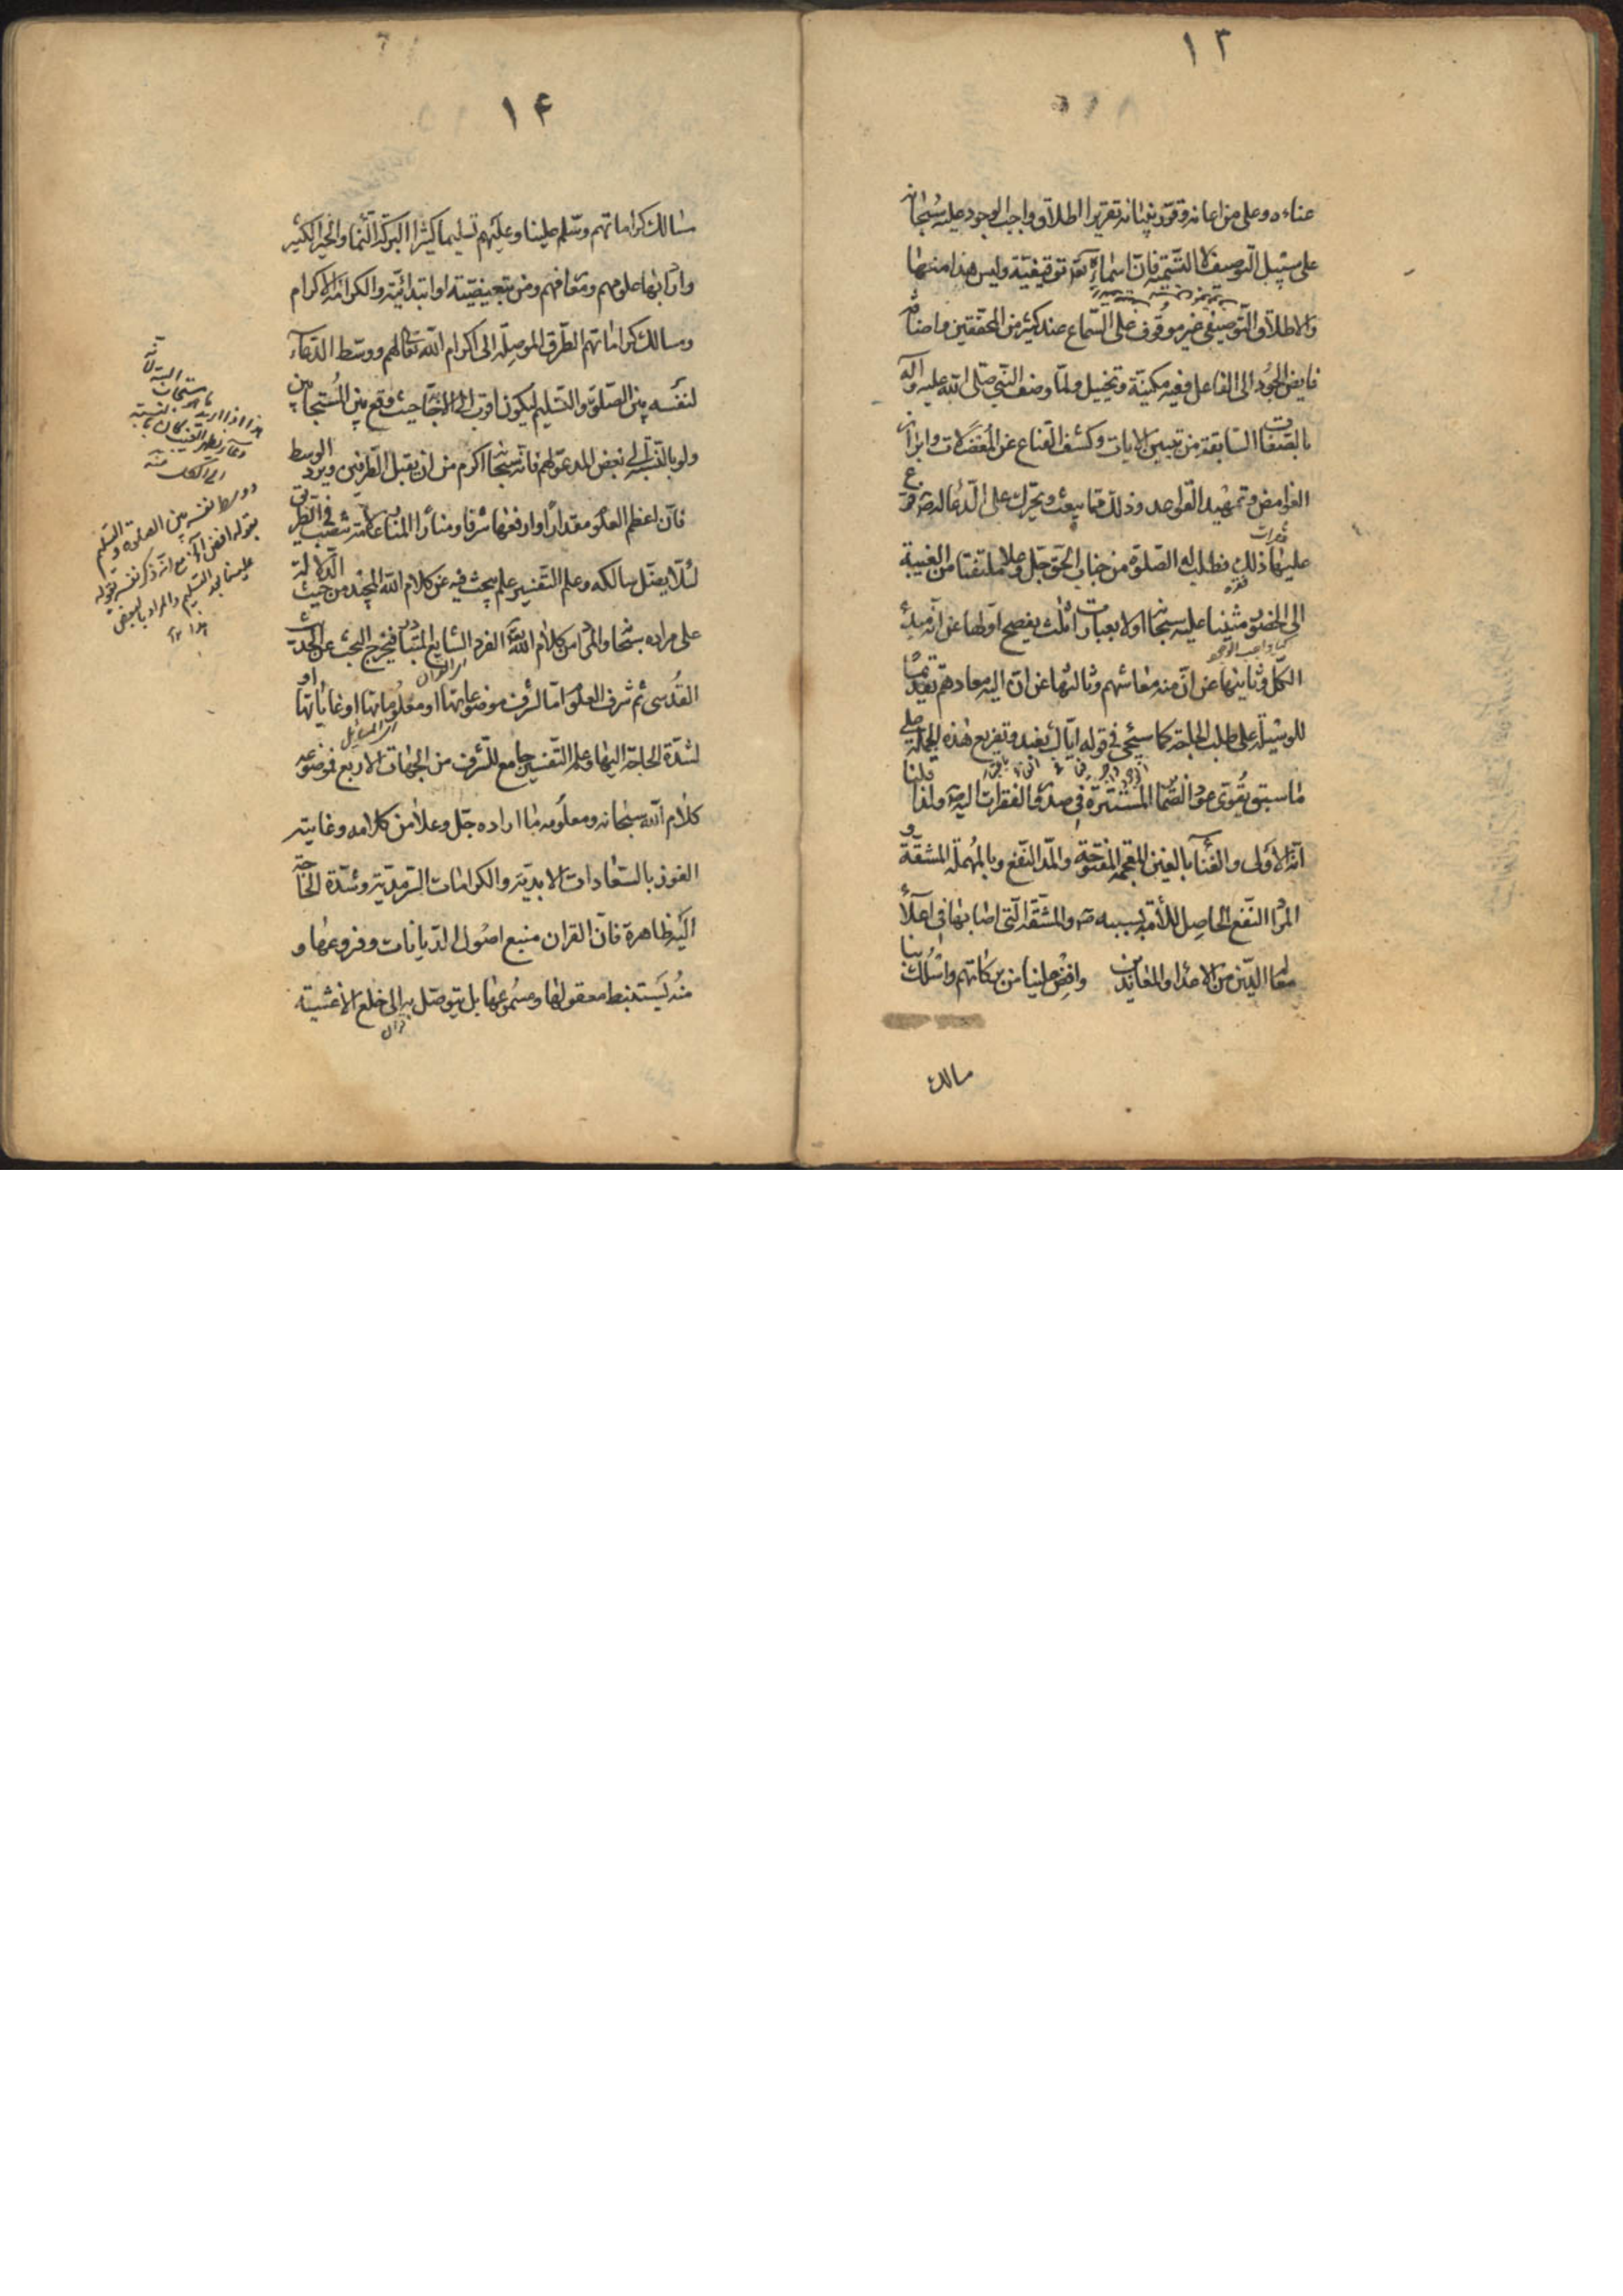 ١٣
عناءه وعلى من اعانه وقوّة بنيانه تقريرا اطلاق واجب الوجود عليه سبحانه
على سبيل التوصيف لا التسمية فان اسماءه تعه توقيفيّة وليس هذا منها
والاطلاق التوصيفى غير موقوف على السّماع عند كثير من المحققين واضافة
فايض الجود الى الفاعل وفيه مكنيّة وتخييل ولمّا وصف النّبي صلّى الله عليه وآله
بالصّفات السّابقة من تبيين الايات وكشف القناع عن المعضلات وابراز
الغوامض وتمهيد القواعد وذلك ممّا يبعث ويحرك على الدّعا له صه فرّع
عليها ذلك فطلب له الصّلوة من جناب الحق جلّ وعلا ملتفتا من الغيبة
الى الحضور مثنيا عليه سبحانه اولا بعبارات ثلث يفصح اولها عن انّه مبدأ
الكلّ وثانيها عن انّ منه معاشهم وثالثها عن انّ اليه معادهم تقديما
للوسيلة على طلب الحاجة كما سيجئ فى قوله ايّاك نعبد وتفريع هذه الجملة على
ما سبق يقوّى عود الضّماير المستترة فى صدور الفقرات اليه صه ولذا قلنا
انّه الاولى والغناء بالغين المعجمة المفتوحة والمدّ النّفع وبالمهملة المشقّة و
المراد النّفع الحاصل للأمّة بسببه صه والمشقّة الّتى اصابها فى اعلاء
معالم الدّين من الاعداء والمعاندين وافض علينا من بركاتهم واسلك بنا
مسالك
١۴
مسالك كراماتهم وسلّم علينا وعليهم تسليما كثيرا البركة النّما والخير الكثير
واراد بها علومهم ومعارفهم ومن تبعيضيّة او ابتدائيّة والكرامة الاكرام
ومسالك كراماتهم الطّرق الموصلة الى اكرام الله تعالى لهم ووسّط الدّعاء
لنفسه بين الصّلوة والتّسليم ليكون اقرب الى الاستجابة حيث وقع بين المستجابين
ولو بالنّسبة الى بعض المدعوّ لهم فانّه سبحانه اكرم من ان يقبل الطّرفين ويردّ الوسط
فانّ اعظم العلوم مقدارا وارفعها شرفا ومنارا المنار علامة تنصب فى الطّريق
لئلّا يضلّ سالكه وعلم التّفسير علم يبحث فيه عن كلام الله المجيد من حيث الدّلالة
على مراده سبحانه والمراد من كلام الله الفرد الشّايع المتبادر فيخرج البحث عن الحديث
القدسى ثم شرف العلوم امّا لشرف موضوعاتها او معلوماتها او غاياتها او
لشدّة الحاجة اليها وعلم التّفسير جامع للشّرف من الجهات الاربع فموضوعه
كلام الله سبحانه ومعلومه ما اراده جلّ وعلا من كلامه وغايته
الفوز بالسّعادات الابديّة والكرامات السّرمديّة وشدّة الحاجة
اليه ظاهرة فانّ القران منبع اصول الدّيانات وفروعها و
منه يستنبط معقولها ومسموعها بل يتوصّل به الى خلع الاغشية
ووسط نفسه بين الصلوة والتسليم
بقوله افض الخ مع انه ذكر نفسه بقوله
علينا بعد التسليم والمراد بالبعض